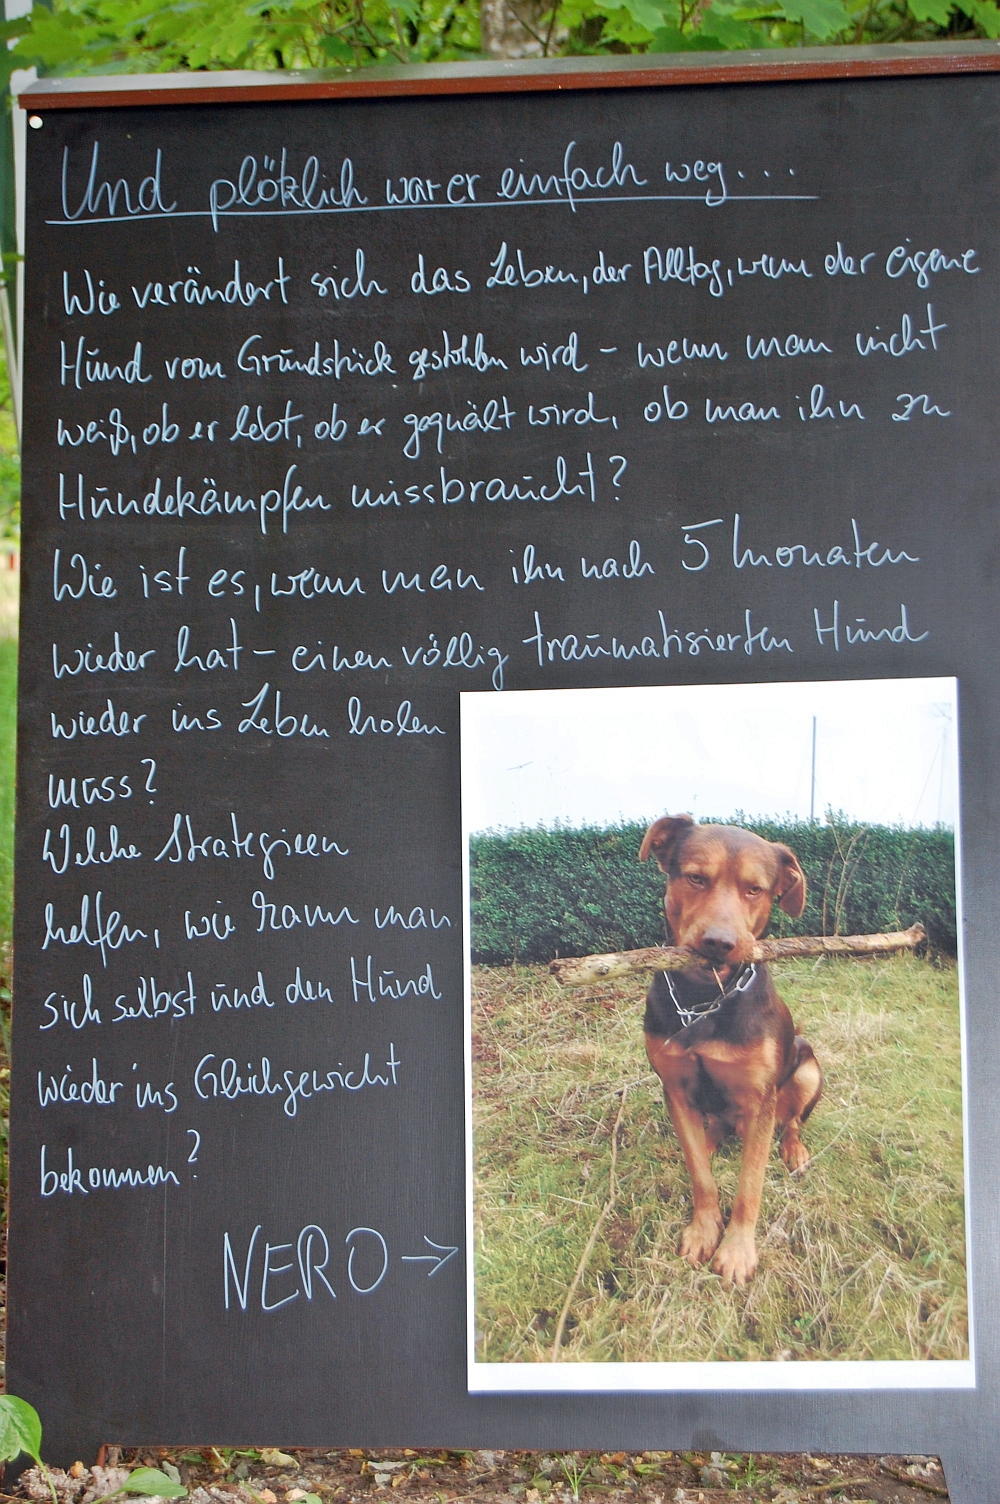 Und plötzlich war er einfach weg...
Wie verändert sich das Leben, der Alltag, wenn der eigene
Hund vom Grundstück gestohlen wird - wenn man nicht
weiß, ob er lebt, ob er gequält wird, ob man ihn zu
Hundekämpfen missbraucht?
Wie ist es, wenn man ihn nach 5 Monaten
wieder hat - einen völlig traumatisierten Hund
wieder ins Leben holen
muss?
Welche Strategieen
helfen, wie kann man
sich selbst und den Hund
wieder ins Gleichgewicht
bekommen?
NERO →